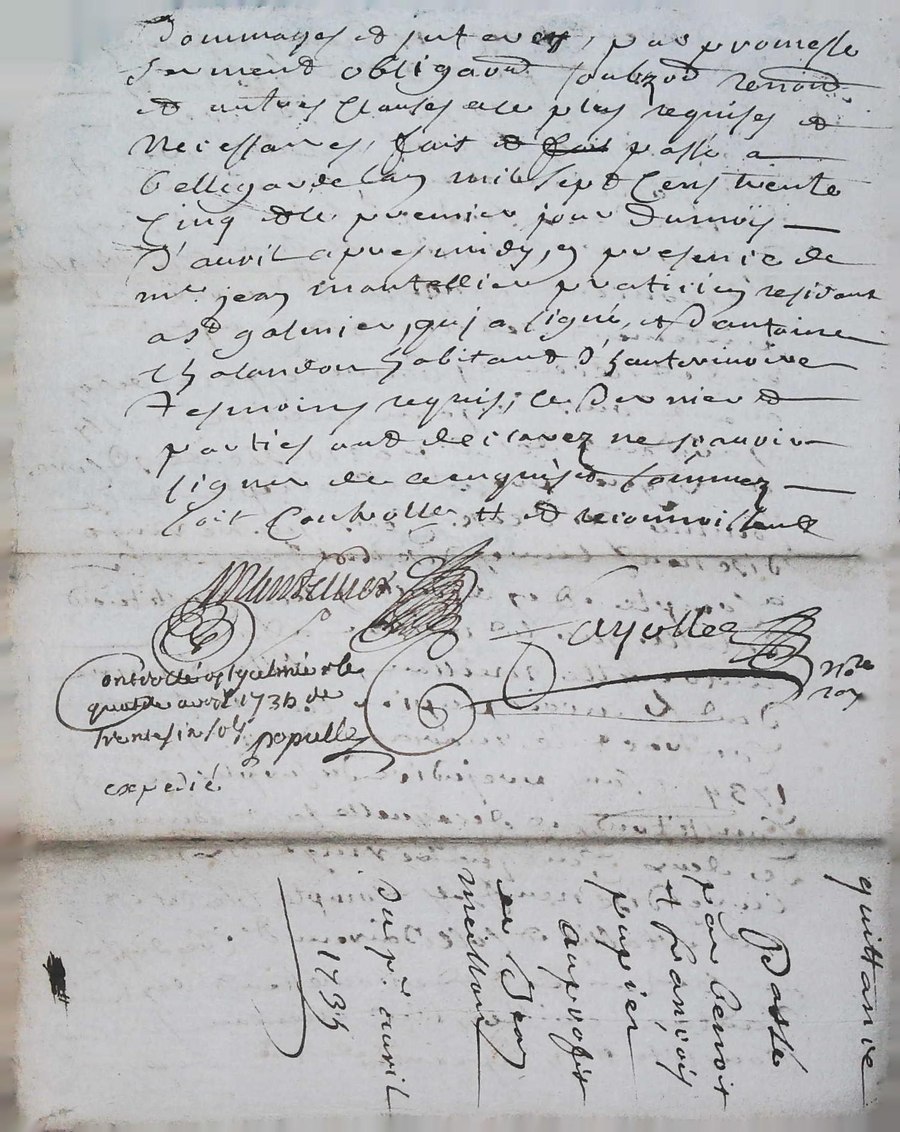 dommages et interes, par promesse
serment obligaon soubzon renon
et autres clauses ace plus requises et
necessaires, fait et fait passé a
bellegarde lan mil sept cens trente
cinq et le premier jour du mois
d'avril apres midy, en presence de
mre jean mantellier praticien residant
a st galmier, quj a signé, et d'antoine
chalandon habitant d'hauterivoire
tesmoins requis, ce dernier et
parties ont declarez ne scavoir
signer de ce enquis et sommez
soit controllé et reconnoissance
Mantellier
Fayolle
nore
roy
controllé a st galmier le
quatre avril 1735 de
trente six sols
populle
expedié
quittance
Passé
par benoit
et francois
pupier
au profit
de Jean
meilloux
Du pr avril
1735